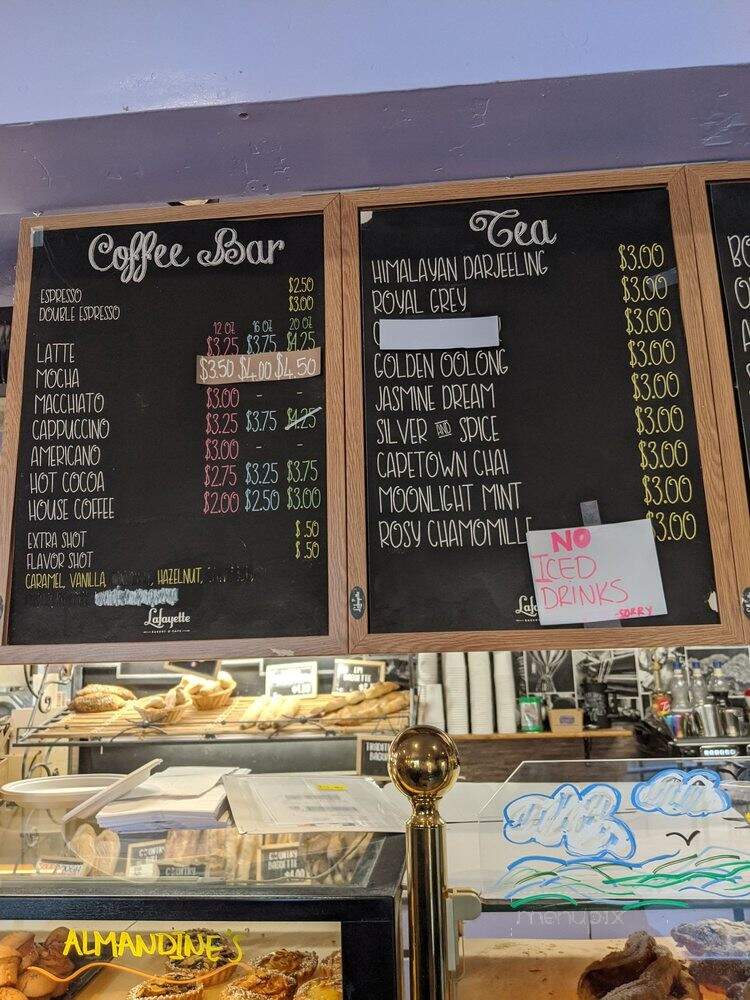 Coffee Bar
ESPRESSO $2.50
DOUBLE ESPRESSO $3.00
12 OZ 16 OZ 20 OZ
LATTE $3.25 $3.75 $4.25
MOCHA $3.50 $4.00 $4.50
MACCHIATO $3.00 - -
CAPPUCCINO $3.25 $3.75 $4.25
AMERICANO $3.00 - -
HOT COCOA $2.75 $3.25 $3.75
HOUSE COFFEE $2.00 $2.50 $3.00
EXTRA SHOT $.50
FLAVOR SHOT $.50
CARAMEL, VANILLA, HAZELNUT,
Lafayette
BAKERY & CAFE
Tea
HIMALAYAN DARJEELING $3.00
ROYAL GREY $3.00
$3.00
GOLDEN OOLONG $3.00
JASMINE DREAM $3.00
SILVER AND SPICE $3.00
CAPETOWN CHAI $3.00
MOONLIGHT MINT $3.00
ROSY CHAMOMILLE $3.00
NO
ICED
DRINKS
-SORRY
COUNTRY
BAGUETTE
ALMANDINE'S
menupix